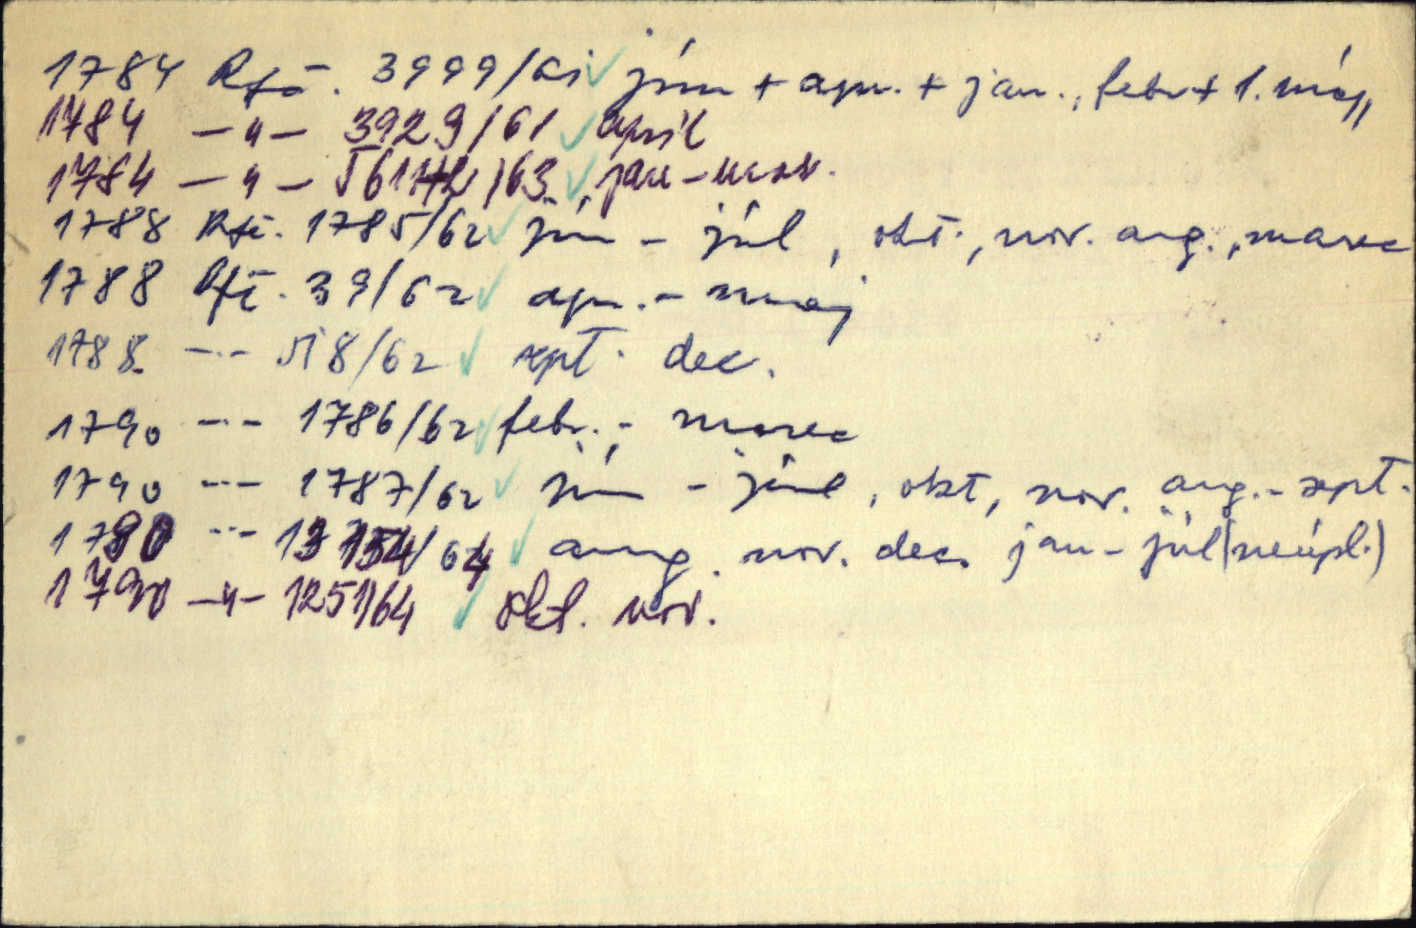 1784 Rfč. 3999/61 ✓ jún + apr. + jan., febr + 1. máj,
1784 —„— 3929/61 ✓ april
1784 —„— /63 ✓ jan-mar.
1788 Rfč. 1785/62 ✓ jún - júl, okt., nov. aug., marec
1788 Rfč. 39/62 ✓ apr. - máj
1788 -"- 518/62 ✓ sept. dec.
1790 -"- 1786/62 ✓ febr. - marec
1790 -"- 1787/62 ✓ jún - júl, okt, nov. aug. - sept.
1790 -"- /64 ✓ aug. nov. dec. jan - júl (neúpl.)
1790 —„— 1251/64 ✓ okt. nov.